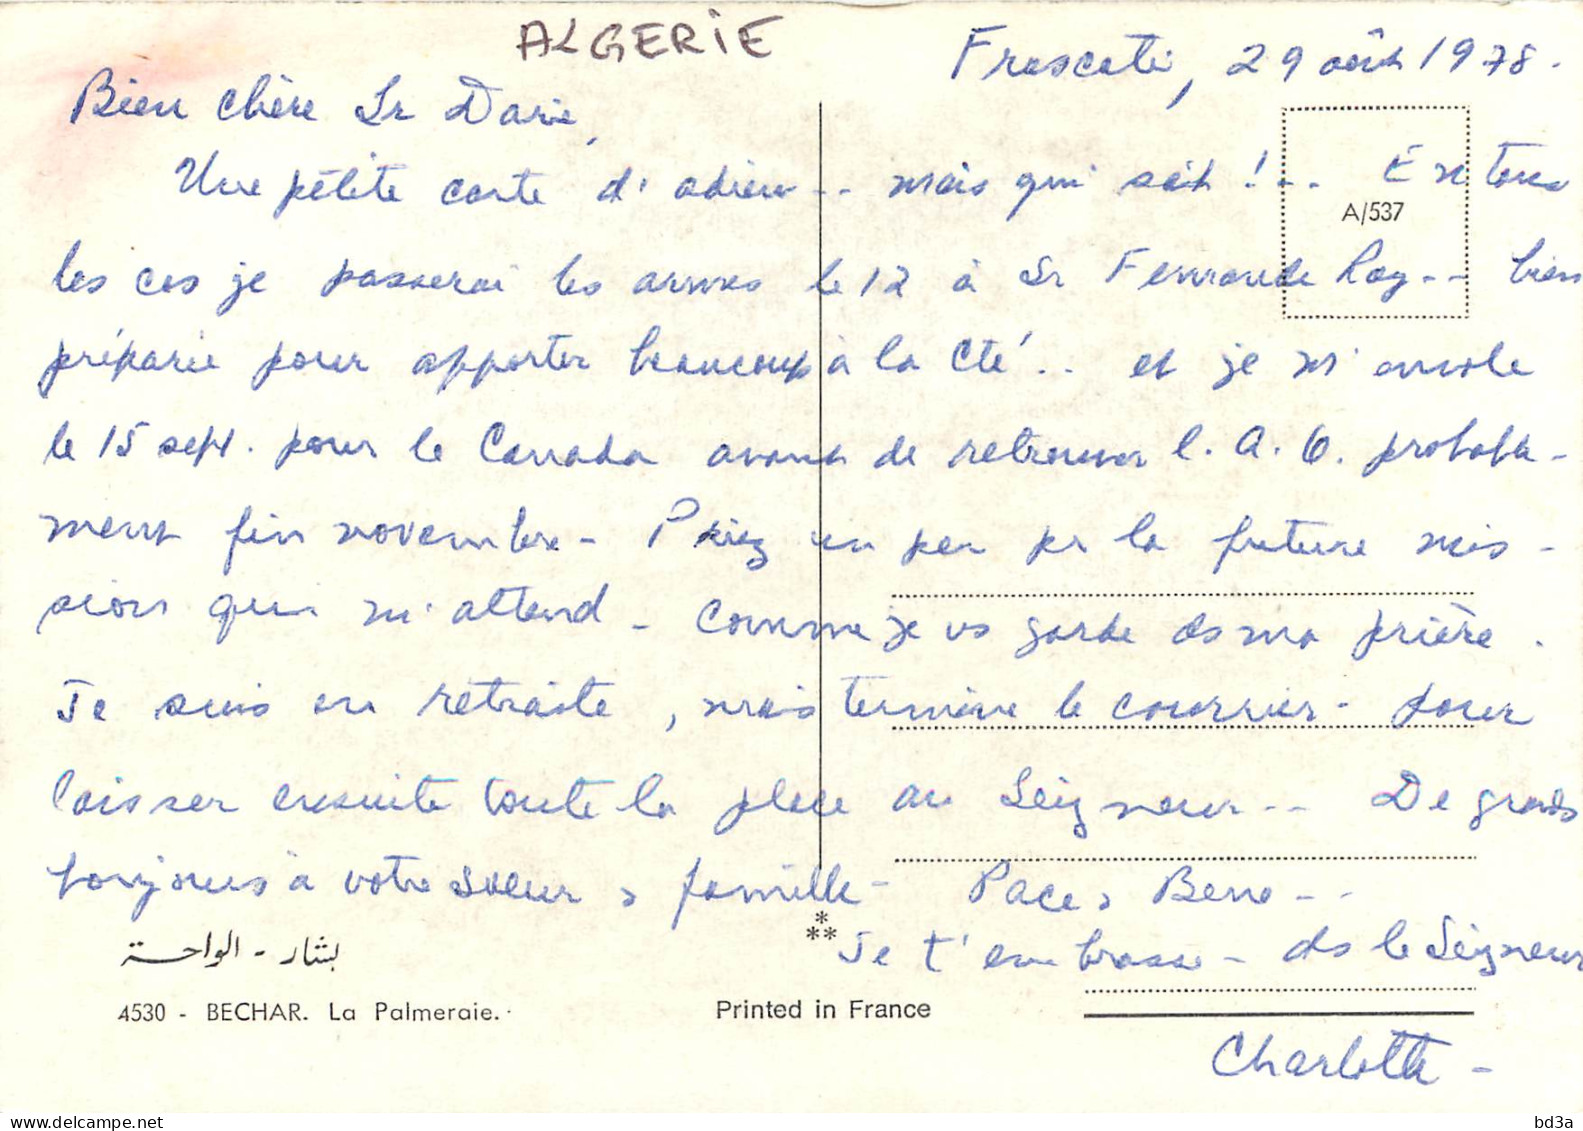 ALGERIE
Frascati, 29 août 1978.
Bien chère Sr Darie,
Une petite carte d'adieu... mais qui sait!... En tous
les cas je passerai les armes le 12 à Sr Fernande Roy... bien
A/537
préparée pour apporter beaucoup à la Cté... et je m'envole
le 15 sept. pour le Canada avant de retrouver l'A. O. probable-
ment fin novembre - Priez un peu pr la future mis-
sion qui m'attend - comme je vs garde ds ma prière.
Je suis en retraite, mais termine le courrier - pour
laisser ensuite toute la place au Seigneur... De grands
bonjours à votre soeur, famille - Pace, Bene...
Je t'embrasse - ds le Seigneur
بشار - الواحة
4530 - BECHAR. La Palmeraie.
Printed in France
Charlotte -
bd3a